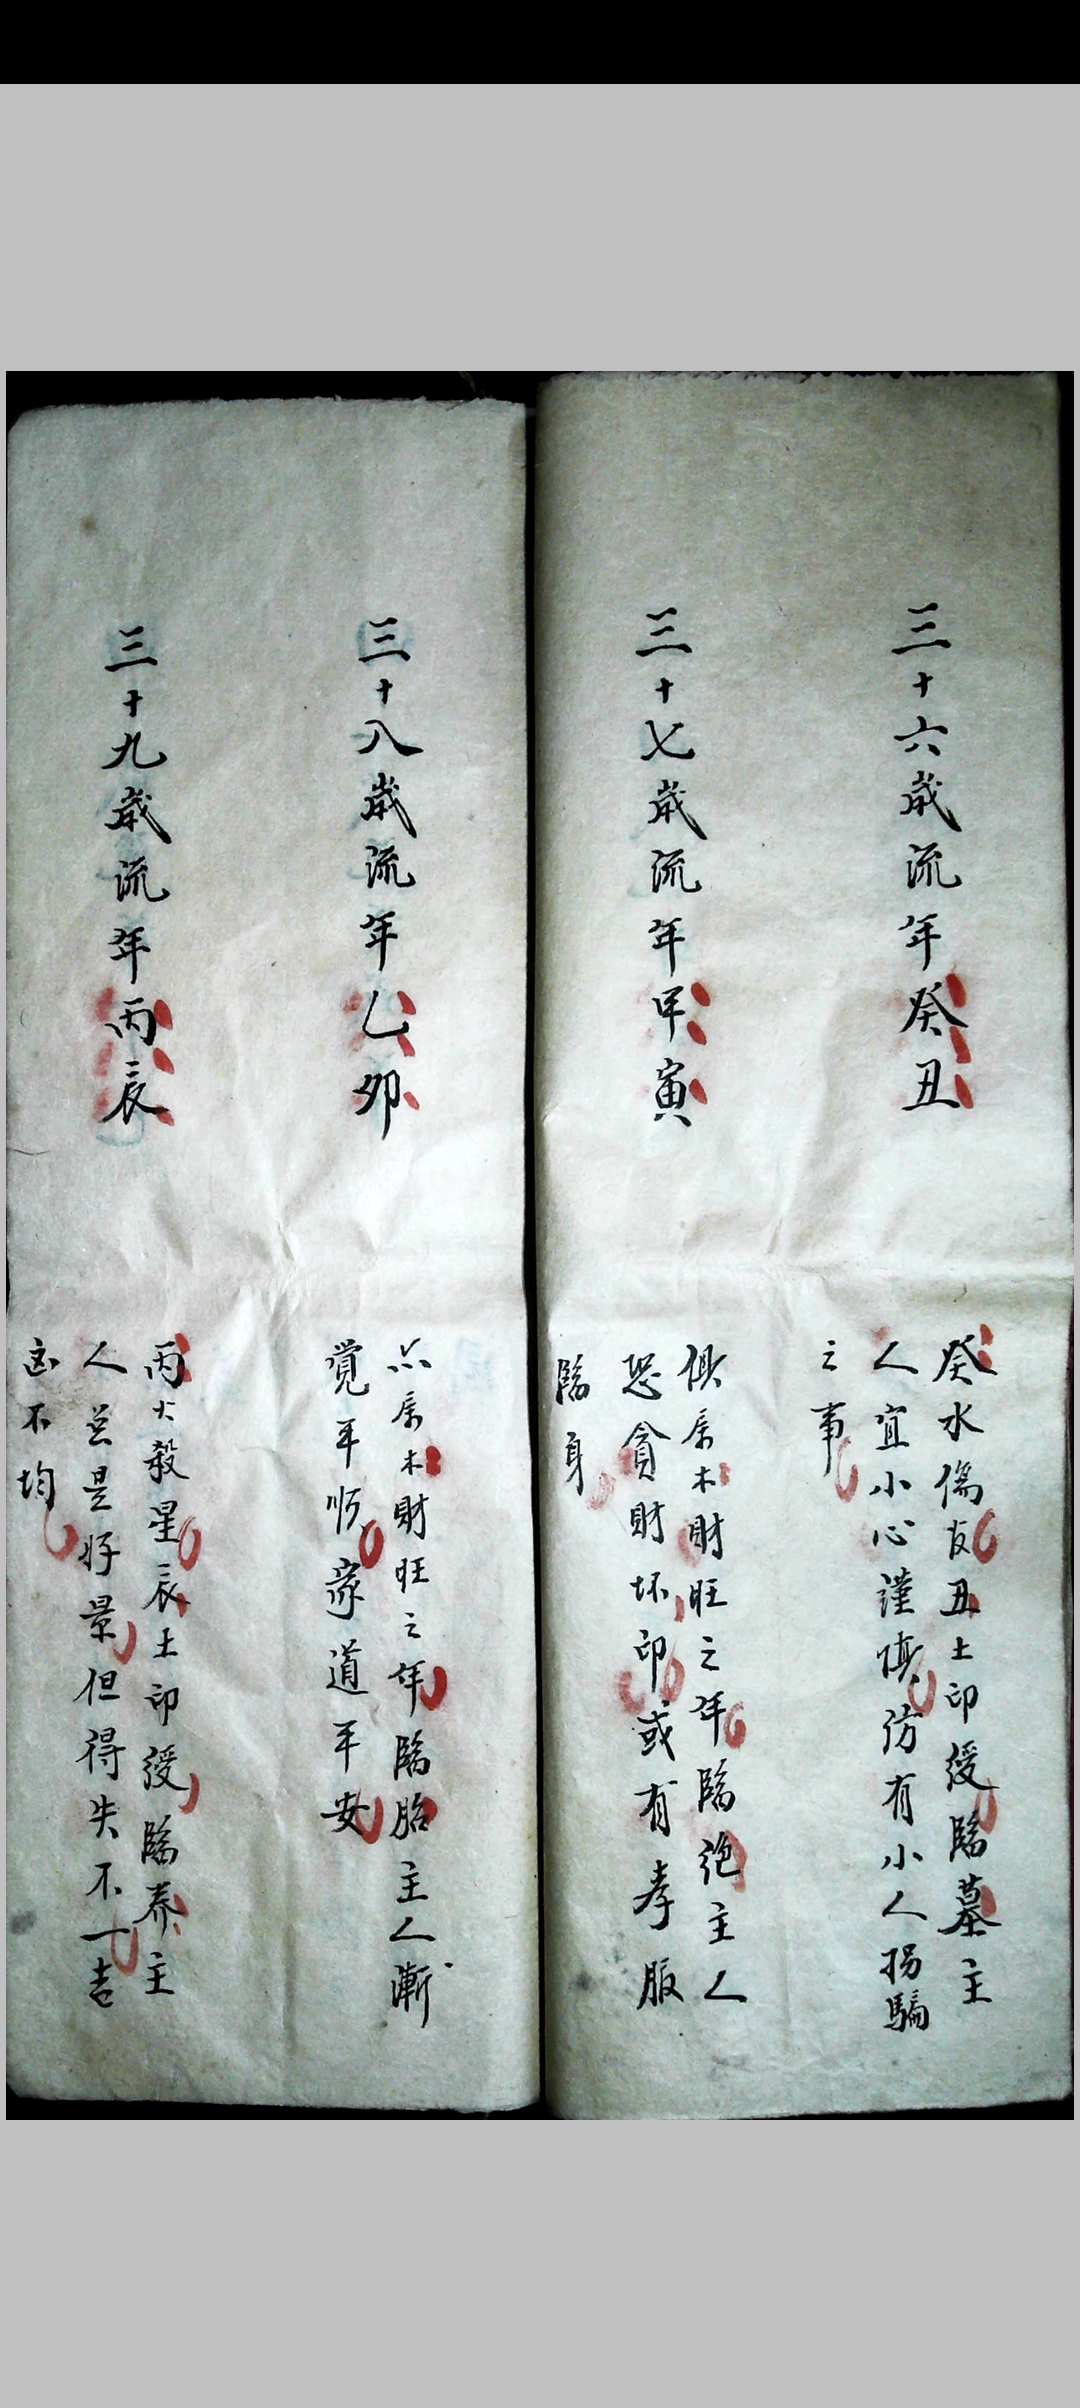 三十六歲流年癸丑
癸水傷友丑土印綬臨墓主
人宜小心謹慎防有小人拐騙
之事
三十七歲流年甲寅
俱属木財旺之年臨絶主人
恐貪財坏印或有孝服
臨身
三十八歲流年乙夘
属木財旺之年臨胎主人漸
覺平順家道平安
三十九歲流年丙辰
丙火殺星辰土印綬臨养主
人总是好景但得失不一吉
凶不均